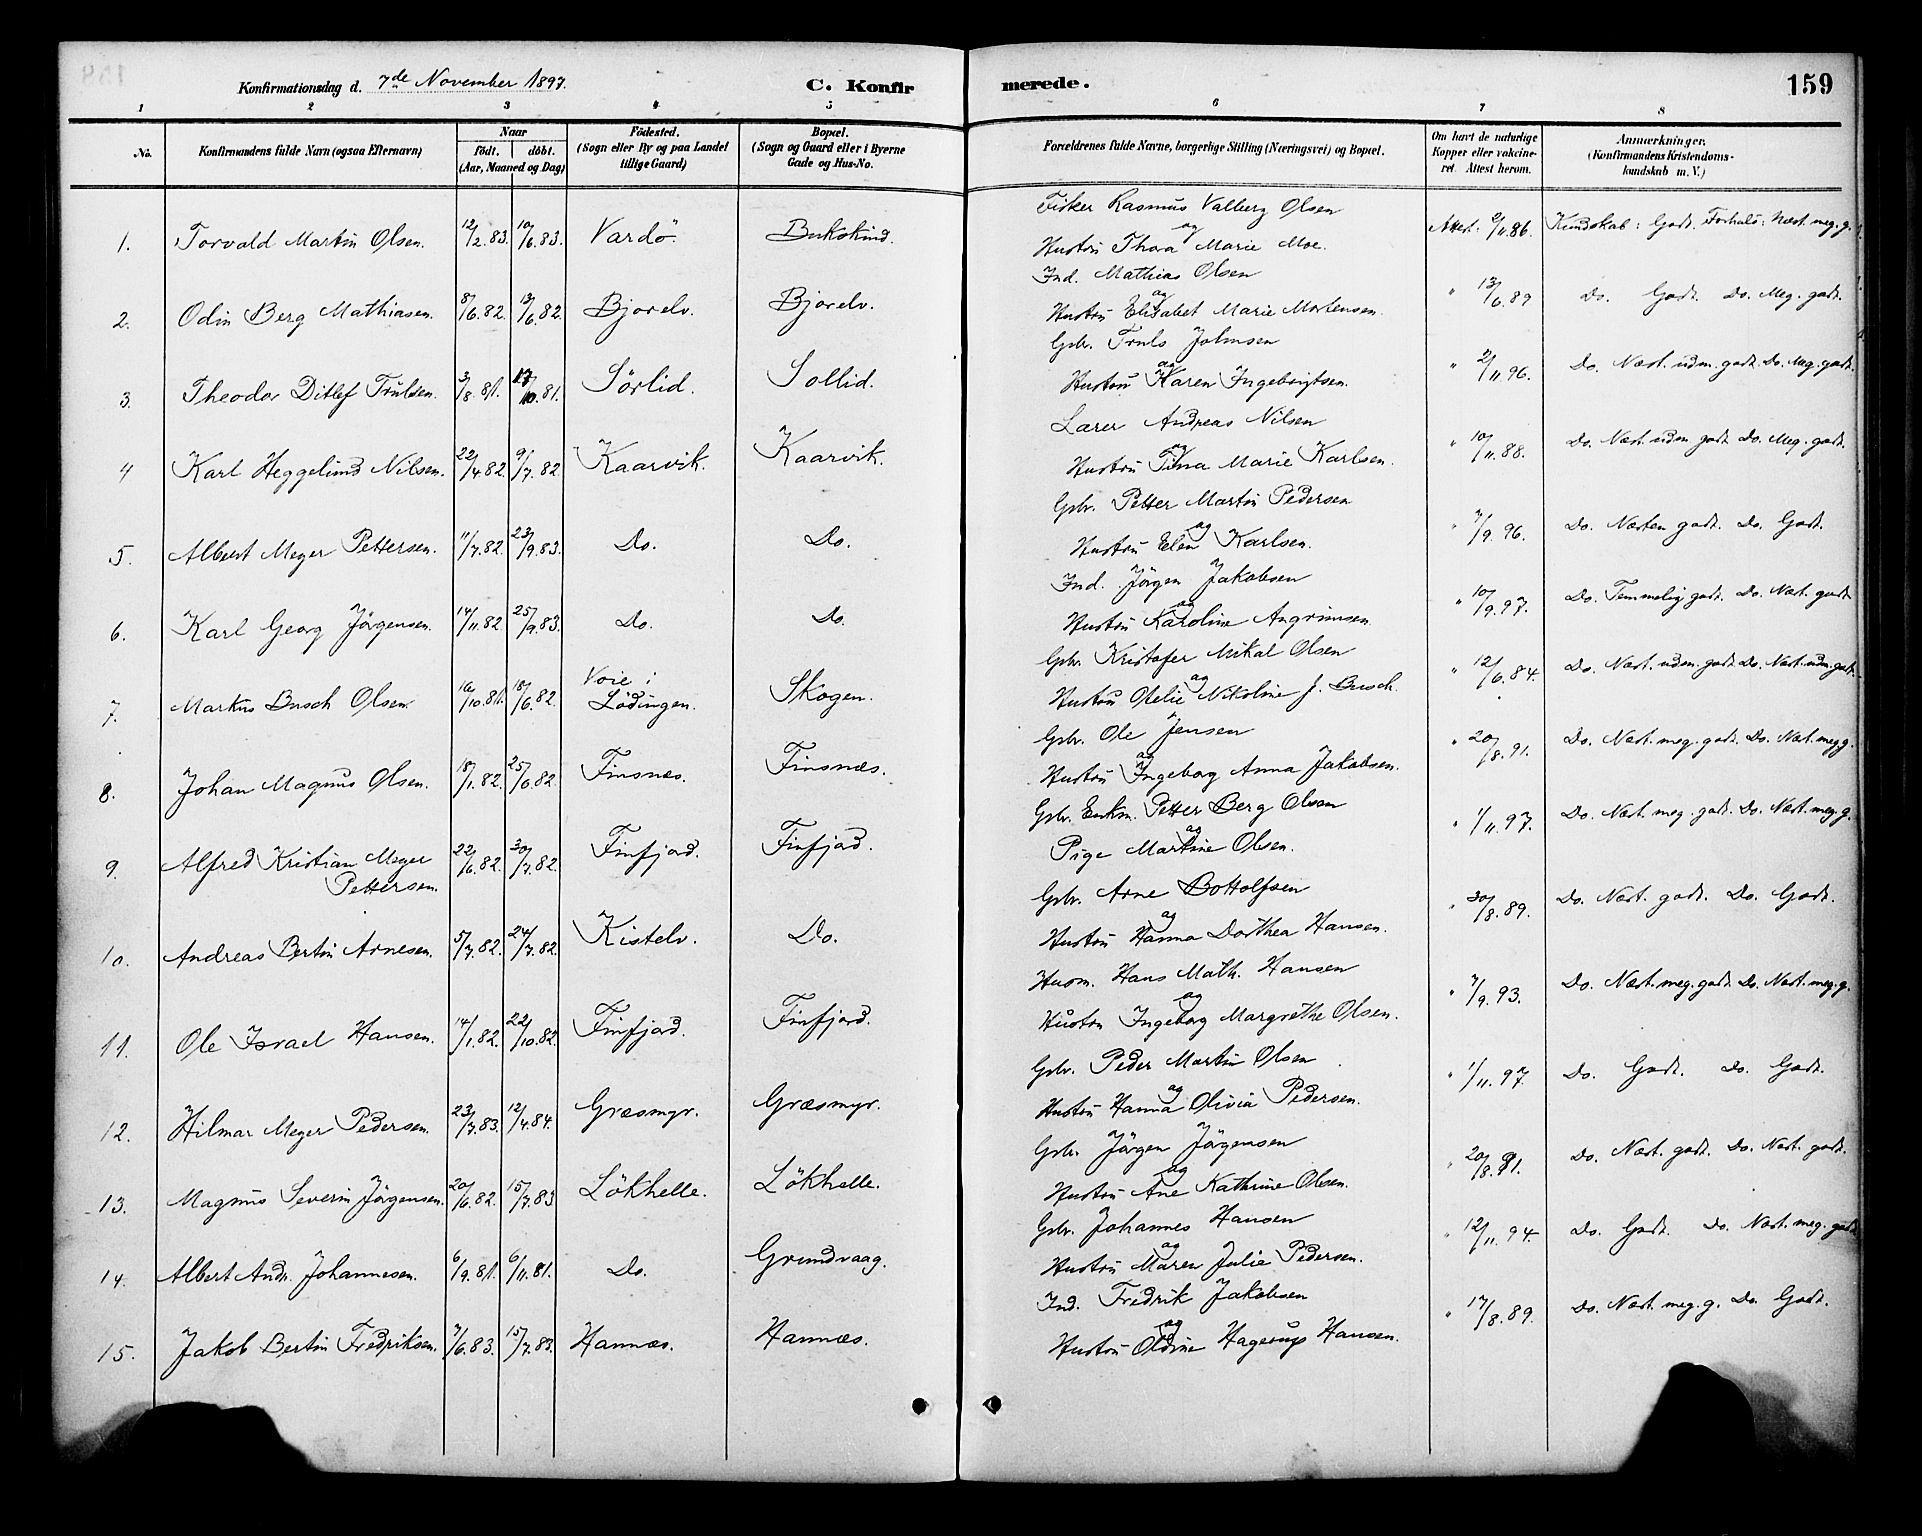 Konfirmationsdag d. 7de November 1897.
C. Konfirmerede.
159
1 2 3 4 5 6 7 8
No.
Konfirmandens fulde Navn (ogsaa Efternavn)
Naar
født. døbt.
(Aar, Maaned og Dag)
Födested.
(Sogn eller By og paa Landet
tillige Gaard)
Bopæl.
(Sogn og Gaard eller i Byerne
Gade og Hus-No.
Forældrenes fulde Navne, borgerlige Stilling (Næringsvei) og Bopæl.
Om havt de naturlige
Kopper eller vakcine-
ret. Attest herom.
Anmærkninger.
(Konfirmandens Kristendoms-
kundskab m. V.)
1. Torvald Martin Olsen. 12/2.83. 10/6.83. Vardö. Bukskind. Fisker Rasmus Valberg Olsen
og
Hustru Thora Marie Moe. Attest: 9/11 86. Kundskab: Godt. Forhold: Næst. meg. g.
2. Odin Berg Mathiasen. 8/6.82. 13/6.82. Bjorelv. Bjorelv. Ind. Mathias Olsen
og
Hustru Elisabet Marie Mortensen. " 13/6.89 Do. Godt. Do. Meg. godt.
3. Theodor Ditlef Trulsen. 3/8.81. 17/10.81. Sörlid. Sollid. Gbr. Truls Johnsen
og
Hustru Karen Ingebrigtsen. " 2/11.96. Do. Næst. udm. godt. Do. Meg. godt.
4 Karl Heggelund Nilsen. 22/4.82. 9/7.82. Kaarvik. Kaarvik. Lærer Andreas Nilsen
og
Hustru Tina Marie Karlsen. " 10/11.88. Do. Næst. udm. godt. Do. Meg. godt.
5. Albert Meyer Pettersen. 11/7.82. 23/9.83. Do. Do. Gbr. Petter Martin Pedersen
og
Hustru Elen Karlsen. " 7/9.96. Do. Næsten godt. Do. Godt.
6. Karl Georg Jörgensen. 14/11.82. 25/9.83. Do. Do. Ind. Jörgen Jakobsen
og
Hustru Karoline Angrimsen. " 10/9.97. Do. Temmelig godt. Do. Næst. godt
7. Markus Busch Olsen. 10/10.81. 18/6.82. Voie i
Lödingen. Skogen. Gbr. Kristofer Mikal Olsen
og
Hustru Ofelie Nikoline J. Busch. " 12/6.84. Do. Næst. udm. godt Do. Næst. udm. godt.
8. Johan Magnus Olsen. 18/1.82. 25/6.82 Finsnæs. Finsnæs. Gbr. Ole Jensen
og
Hustru Ingeborg Anna Jakobsen. " 20/8.91. Do. Næst. meg. godt. Do. Næst. meg. g.
9. Alfred Kristian Meyer
Pettersen. 22/6.82. 30/7.82. Finfjord. Finfjord. Gbr. Enkm. Petter Berg Olsen
og
Pige Martine Olsen. " 1/11.97. Do. Næst. meg. godt. Do. Næst. meg. g.
10. Andreas Bertin Arnesen. 5/7.82. 24/7.82. Kistelv. Do. Gbr. Arne Bottolfsen
og
Hustru Hanna Dorthea Hansen. " 30/8.89. Do. Næst. godt. Do. Godt.
11. Ole Israel Hansen. 14/1.82. 22/10.82. Finfjord. Finfjord. Husm. Hans Math. Hansen
og
Hustru Ingeborg Margrethe Olsen. " 7/9.93. Do. Næst. meg. godt. Do. Næst. meg. g.
12. Hilmar Meyer Pedersen. 23/7.83. 12/4.84. Græsmyr. Græsmyr. Gbr. Peder Martin Olsen
og
Hustru Hanna Olivia Pedersen. " 1/11.97. Do. Godt. Do. Godt.
13. Magnus Severin Jörgensen. 20/6.82. 15/7.83 Lökhelle. Lökhelle. Gbr. Jörgen Jörgensen
og
Hustru Ane Kathrine Olsen. " 20/8.91. Do. Næst. godt. Do. Næst. godt.
14. Albert Andr. Johannesen. 6/9.81. 6/11.81. Do. Grundvaag. Gbr. Johannes Hansen
og
Hustru Maren Julie Pedersen. " 12/11.94. Do. Godt. Do. Næst. meg. godt
15. Jakob Bertin Fredriksen. 7/6.83. 15/7.83. Hannæs. Hannæs. Ind. Fredrik Jakobsen
og
Hustru Oldine Hagerup Hansen. " 17/8.89. Do. Næst. meg. g. Do. Godt.